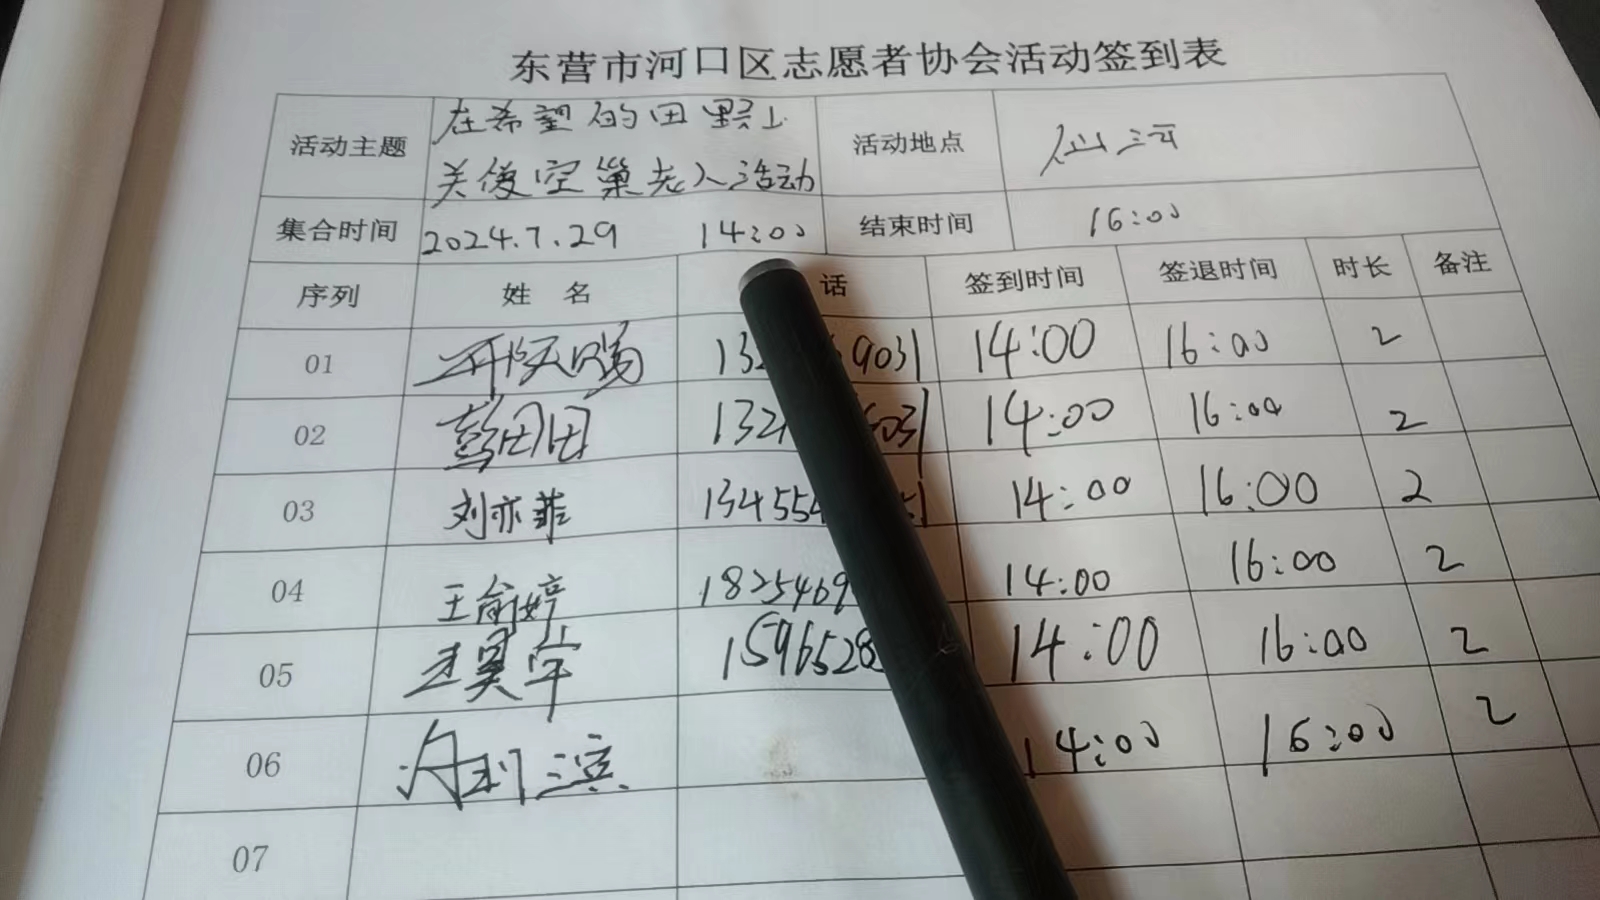 东营市河口区志愿者协会活动签到表
活动主题 在希望的田野上 关爱空巢老人活动 活动地点 仙河
集合时间 2024.7.29 14:00 结束时间 16:00
序列 姓 名 话 签到时间 签退时间 时长 备注
01 132 9031 14:00 16:00 2
02 彭田田 132 6031 14:00 16:00 2
03 刘亦菲 134554 51 14:00 16:00 2
04 王俞婷 1825469 14:00 16:00 2
05 王昊宇 1596528 14:00 16:00 2
06 14:00 16:00 2
07